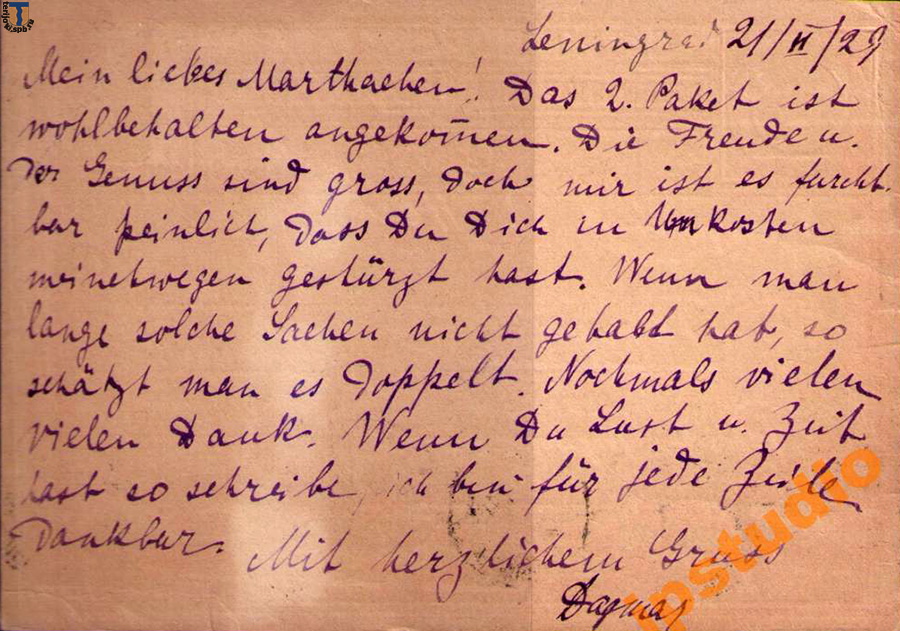 terijoki.spb.ru
Leningrad 21/II/29
Mein liebes Marthachen! Das 2. Paket ist
wohlbehalten angekom̄en. Die Freude u.
der Genuss sind gross, doch mir ist es furcht-
bar peinlich, dass Du Dich in Unkosten
meinetwegen gestürzt hast. Wenn man
lange solche Sachen nicht gehabt hat, so
schätzt man es doppelt. Nochmals vielen
vielen Dank. Wenn Du Lust u. Zeit
hast so schreibe, ich bin für jede Zeile
Dankbar. Mit herzlichem Gruss
Dagmar
pstudio